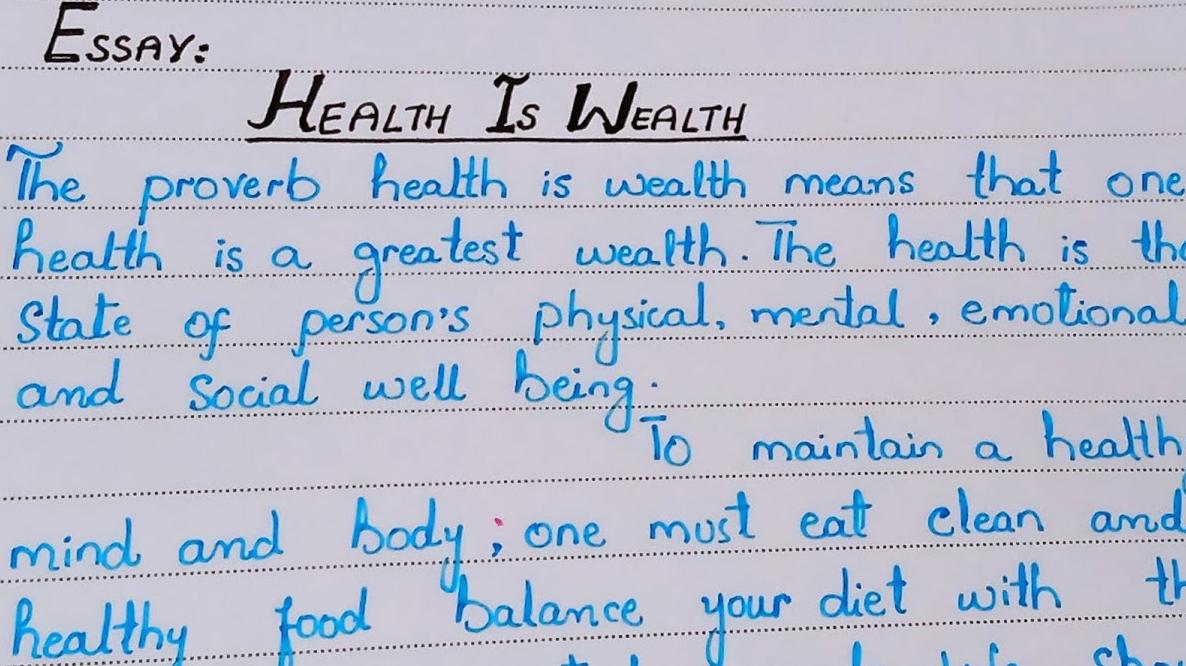 ESSAY:
HEALTH IS WEALTH
The proverb health is wealth means that one
health is a greatest wealth. The health is the
State of person's physical, mental, emotional
and Social well being.
To maintain a health
mind and body; one must eat clean and
healthy food balance your diet with